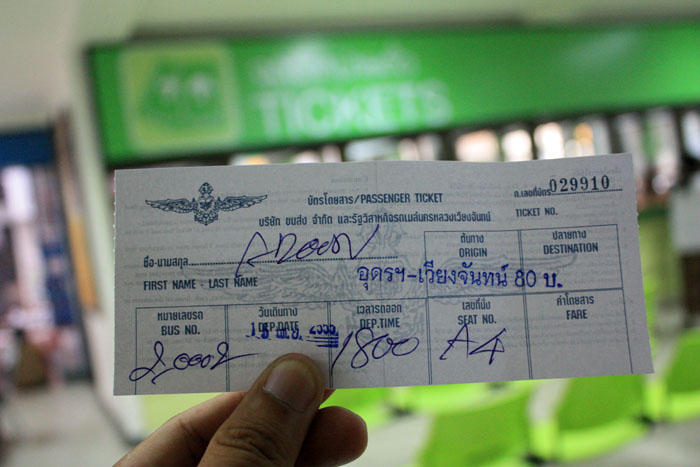 TICKETS
บัตรโดยสาร/PASSENGER TICKET
ต.เลขที่บัตร 029910
บริษัท ขนส่ง จำกัด และรัฐวิสาหกิจรถเมล์นครหลวงเวียงจันทน์
TICKET NO.
ชื่อ-นามสกุล
FIRST NAME - LAST NAME
ต้นทาง
ORIGIN
ปลายทาง
DESTINATION
อุดรฯ-เวียงจันทน์ 80 บ.
หมายเลขรถ
BUS NO.
วันเดินทาง
DEP.DATE
เวลารถออก
DEP.TIME
เลขที่นั่ง
SEAT NO.
ค่าโดยสาร
FARE
1800
A4